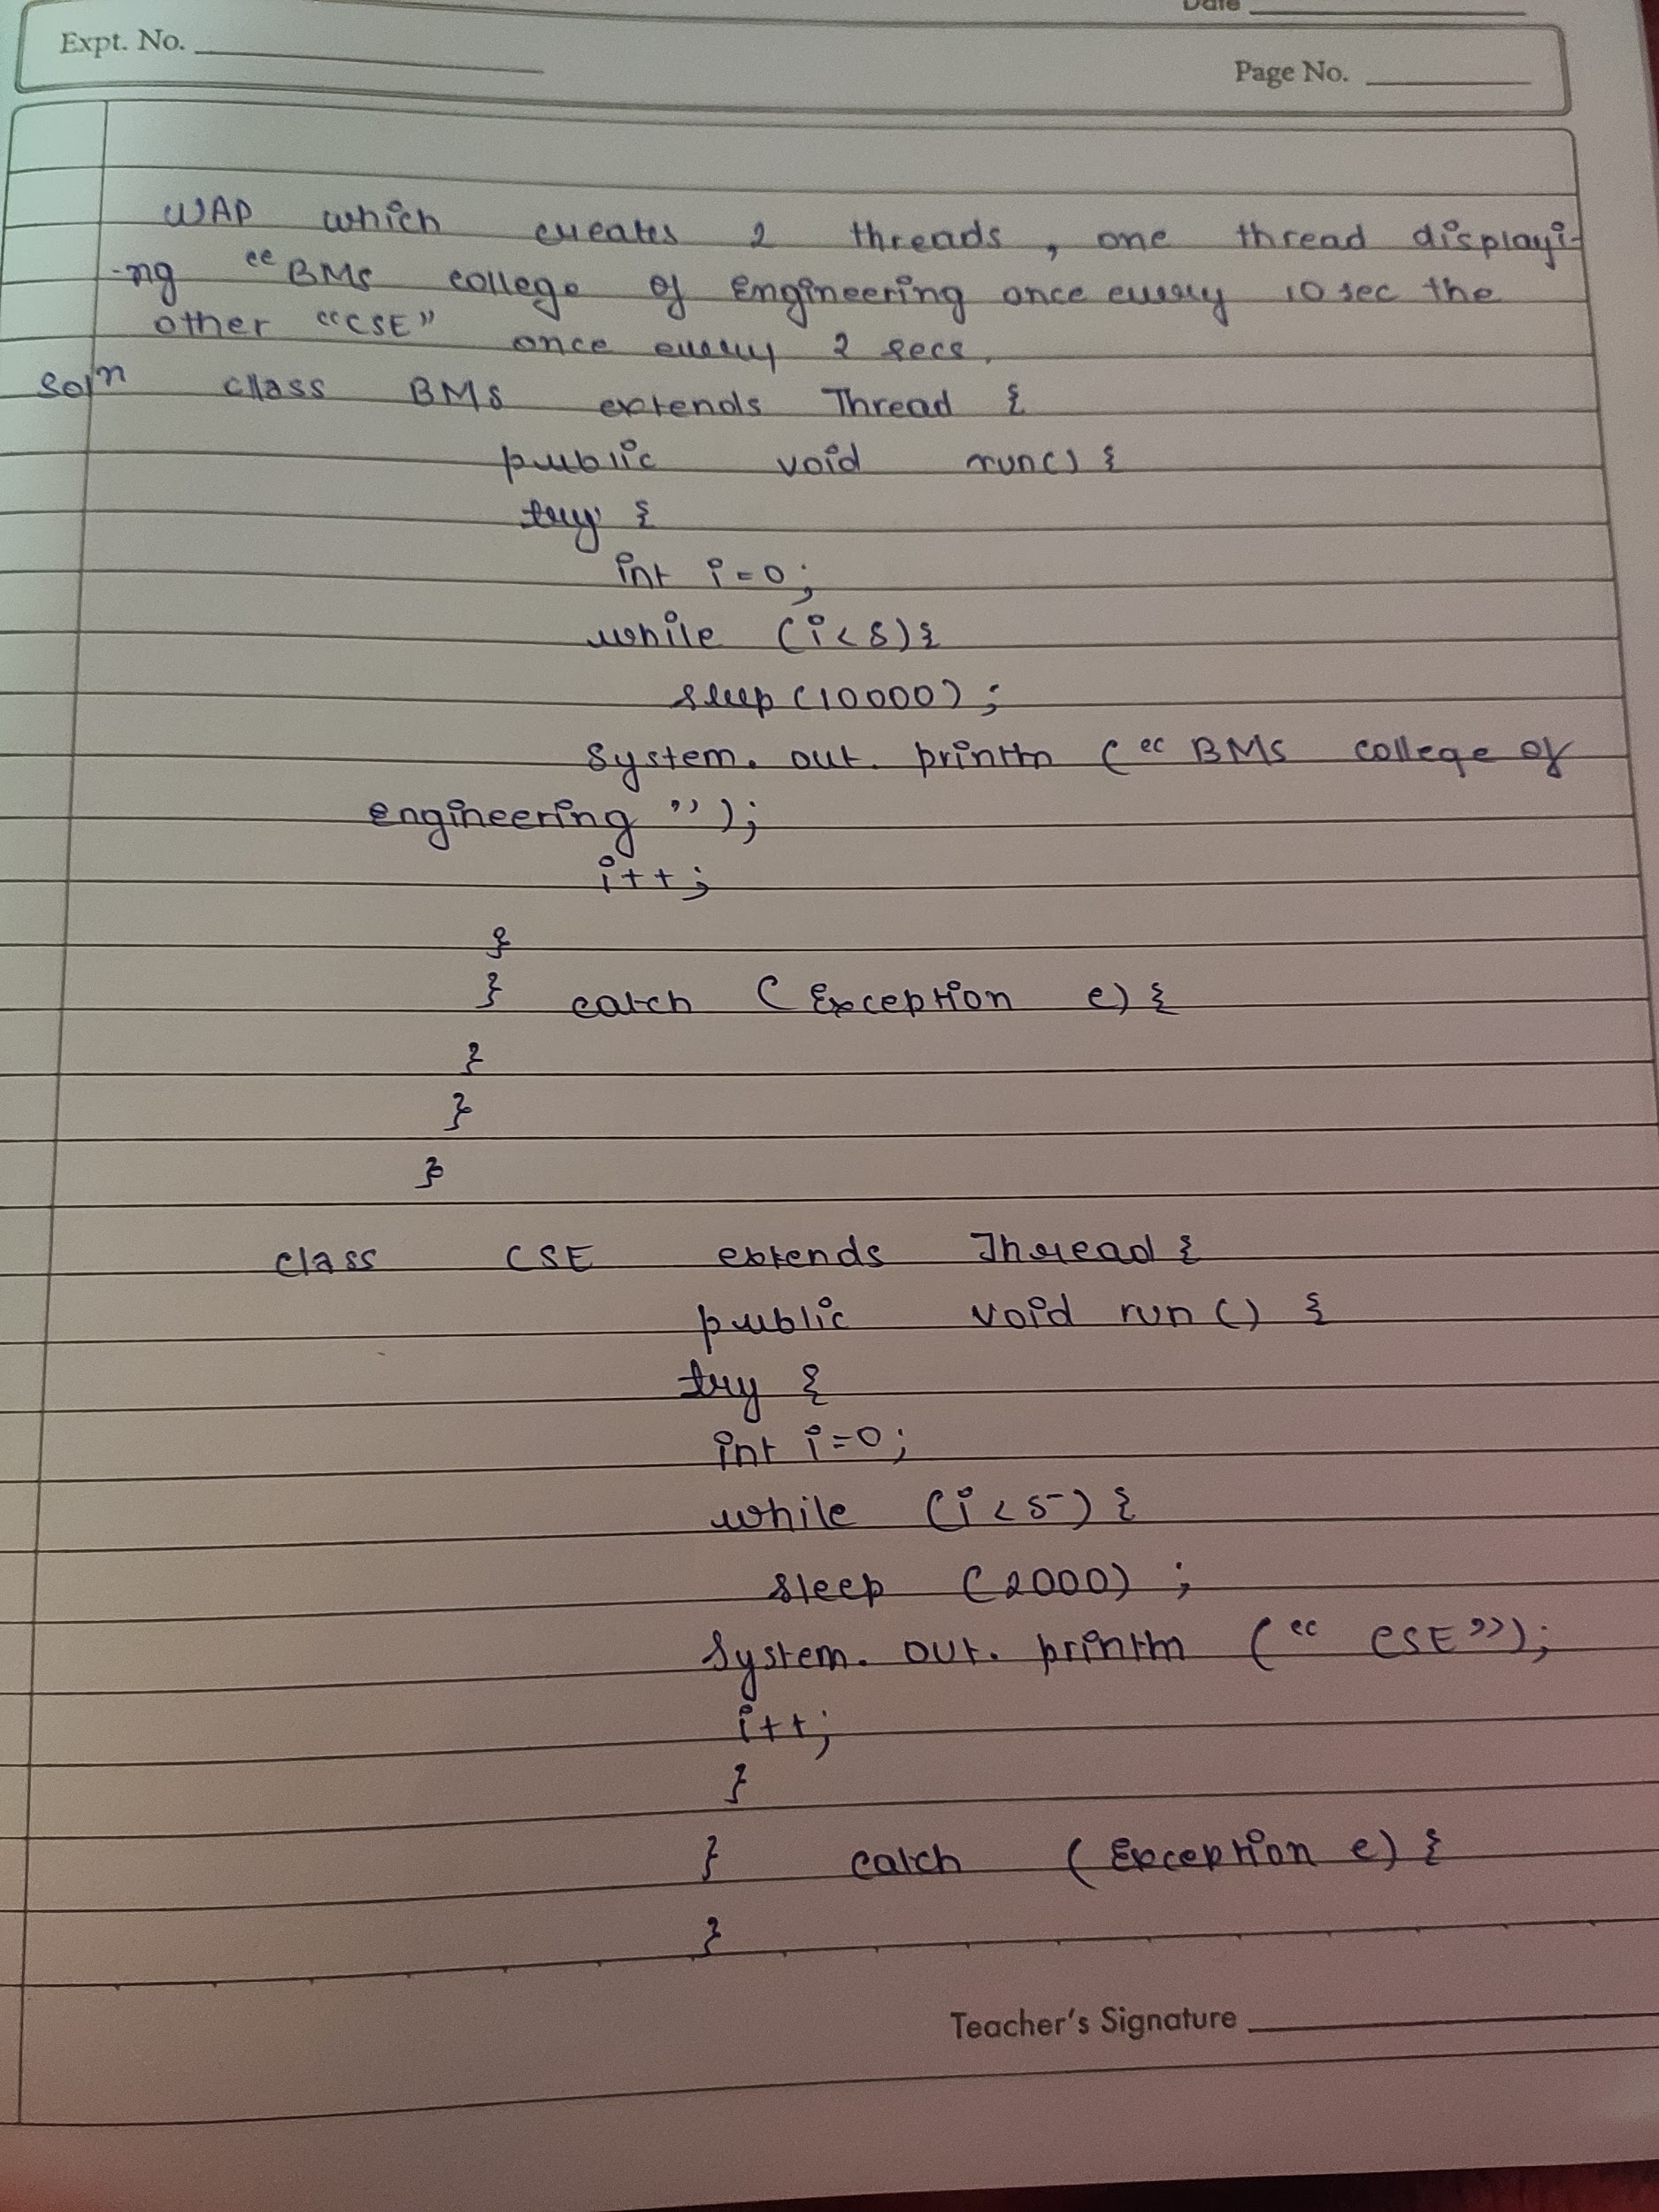 Date
Expt. No.
Page No.
WAP which creates 2 threads, one thread displayi-
-ng “BMS college of Engineering once every 10 sec the
other “CSE” once every 2 secs.
Soln class BMS extends Thread {
public void run() {
try {
int i=0;
while (i<5){
sleep (10000);
System. out. println (“ BMS college of
engineering ”);
i++;
}
} catch (Exception e) {
}
}
}
class CSE extends Thread {
public void run () {
try {
int i=0;
while (i<5) {
sleep (2000) ;
System. out. println (“ CSE”);
i++;
}
} catch (Exception e) {
}
Teacher's Signature